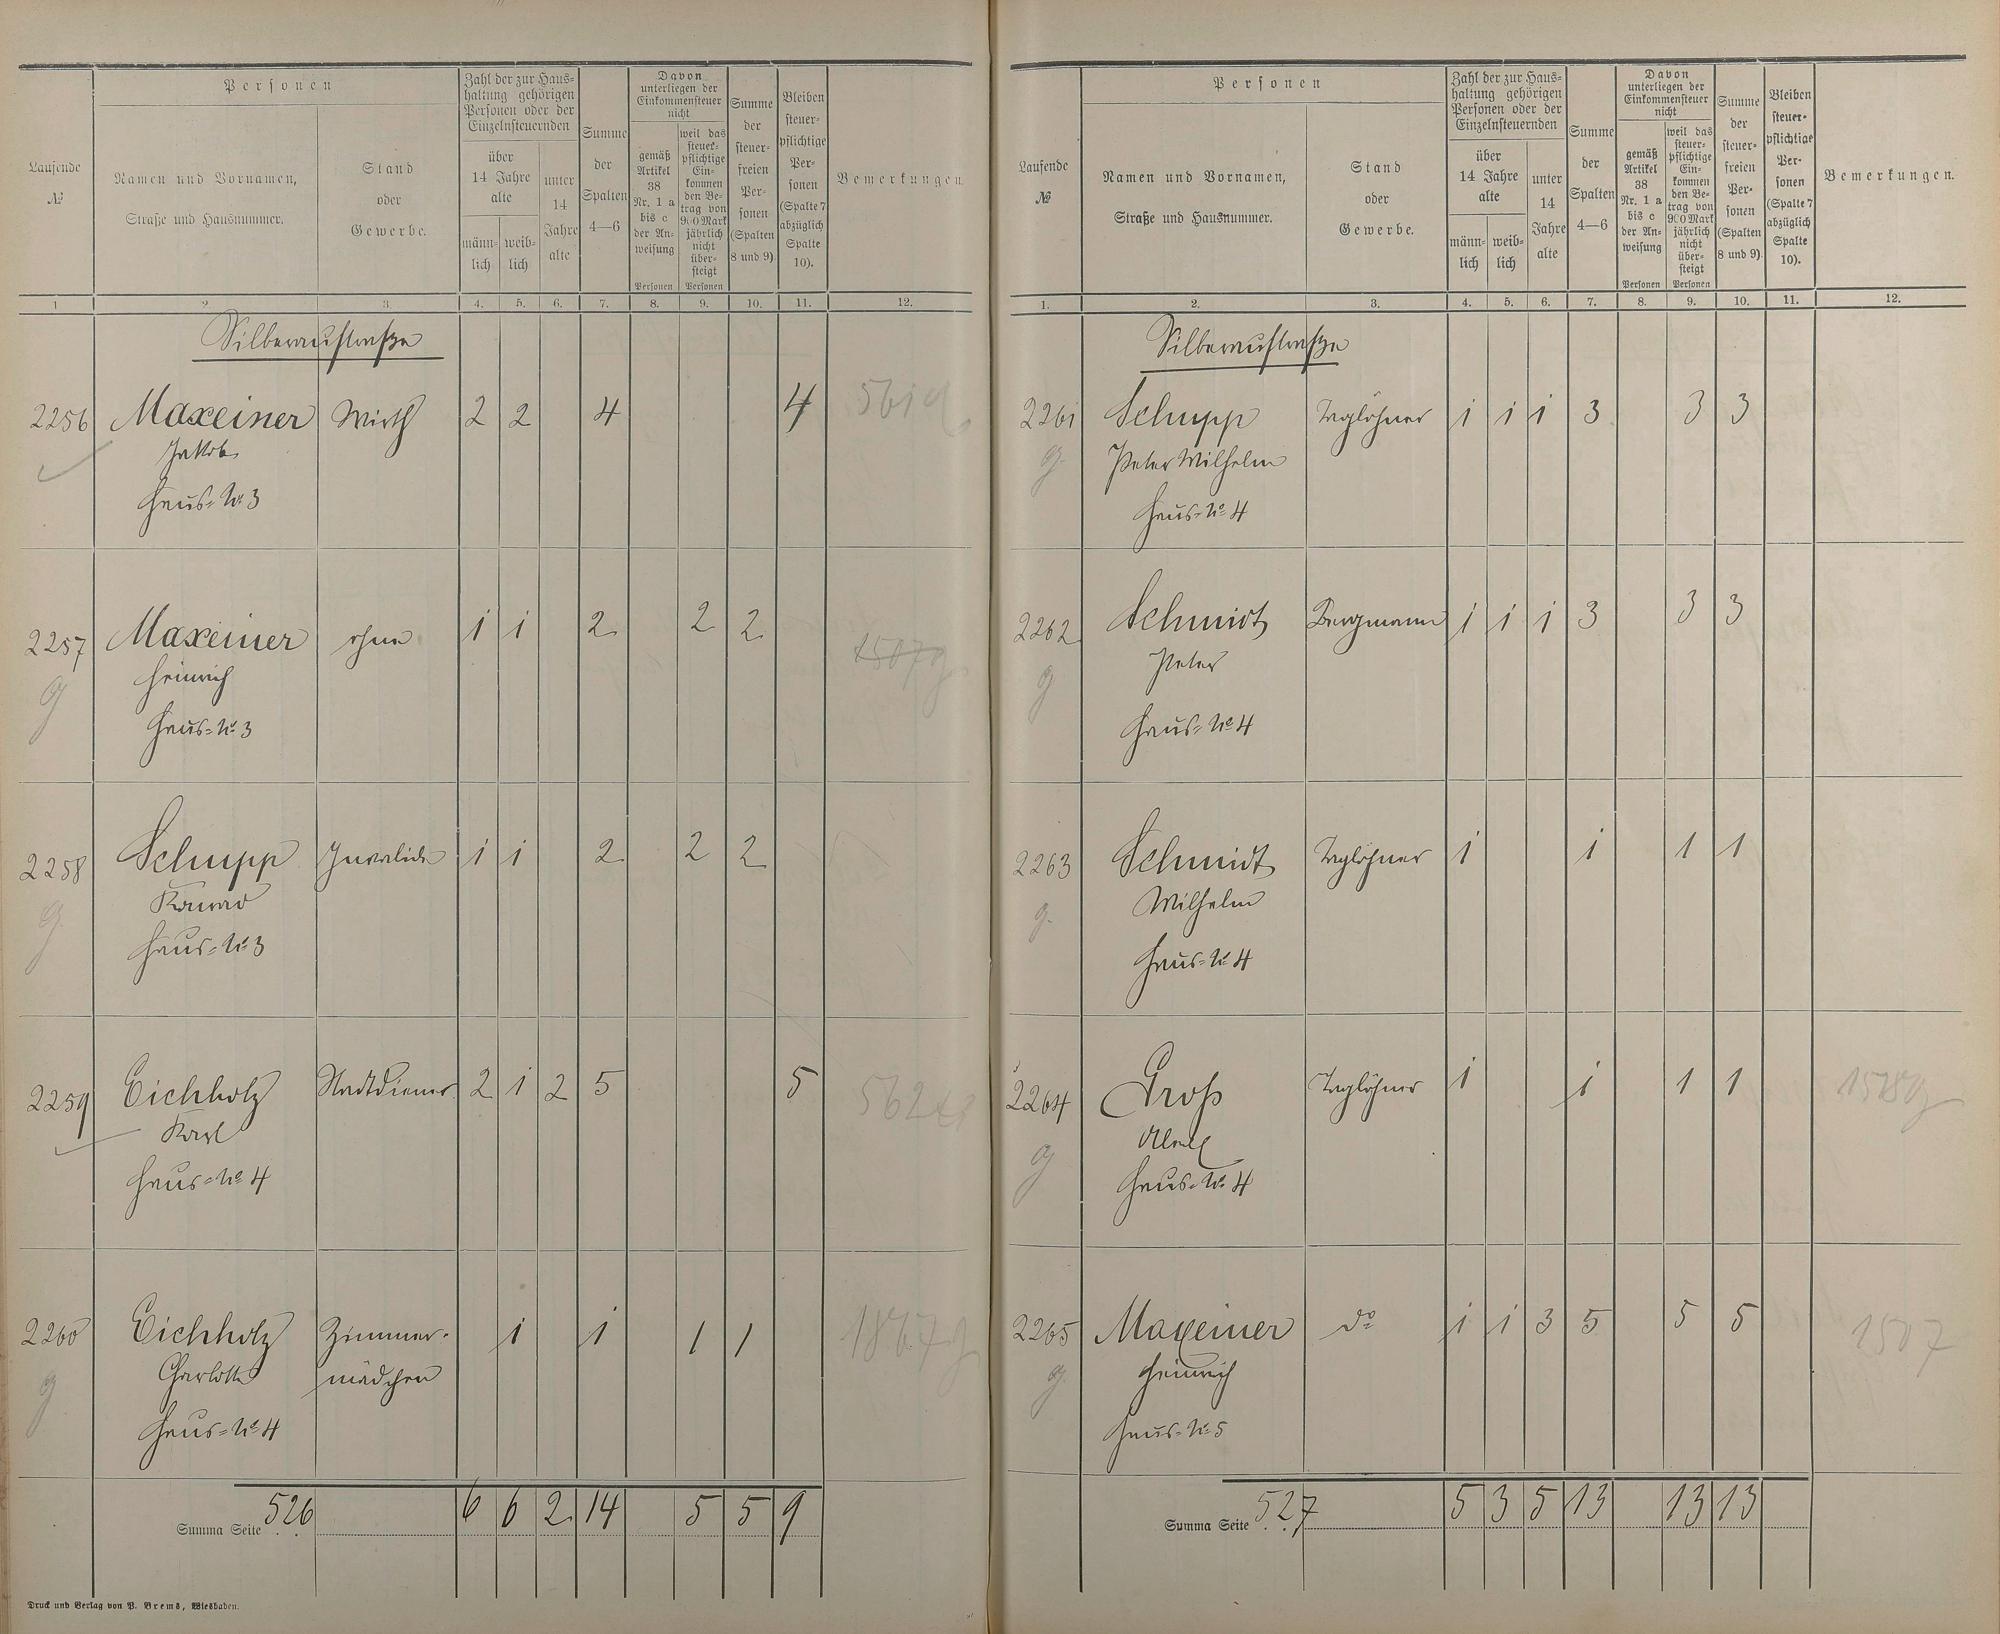 Personen
Laufende
№
Namen und Vornamen,
Straße und Hausnummer.
Stand
oder
Gewerbe.
Zahl der zur Haus-
haltung gehörigen
Personen oder der
Einzelnsteuernden
über
14 Jahre
alte
männ-
lich
weib-
lich
unter
14
Jahre
alte
Summe
der
Spalten
4—6
Davon
unterliegen der
Einkommensteuer
nicht
gemäß
Artikel
38
Nr. 1 a
bis c
der An-
weisung
Personen
weil das
steuer-
pflichtige
Ein-
kommen
den Be-
trag von
900 Mark
jährlich
nicht
über-
steigt
Personen
Summe
der
steuer-
freien
Per-
sonen
(Spalten
8 und 9)
Bleiben
steuer-
pflichtige
Per-
sonen
(Spalte 7
abzüglich
Spalte
10).
Bemerkungen.
1 2. 3. 4. 5. 6. 7. 8. 9. 10. 11. 12.
Silberaustraße
2256 Maxeiner Wirth 2 2 4 4
Jakob
Haus=No 3
2257 Maxeiner ohne 1 1 2 2 2 1507g
g Heinrich
Haus=No 3
2258 Schupp Invalide 1 1 2 2 2
g Konrad
Haus=No 3
2259 Eichholz Stadtdiener 2 1 2 5 5
Karl
Haus=No 4
2260 Eichholz Zimmer- 1 1 1 1
g Charlotte mädchen
Haus=No 4
Summa Seite 526 6 6 2 14 5 5 9
Druck und Verlag von P. Brems, Wiesbaden.
Personen
Laufende
№
Namen und Vornamen,
Straße und Hausnummer.
Stand
oder
Gewerbe.
Zahl der zur Haus-
haltung gehörigen
Personen oder der
Einzelnsteuernden
über
14 Jahre
alte
männ-
lich
weib-
lich
unter
14
Jahre
alte
Summe
der
Spalten
4—6
Davon
unterliegen der
Einkommensteuer
nicht
gemäß
Artikel
38
Nr. 1 a
bis c
der An-
weisung
Personen
weil das
steuer-
pflichtige
Ein-
kommen
den Be-
trag von
900 Mark
jährlich
nicht
über-
steigt
Personen
Summe
der
steuer-
freien
Per-
sonen
(Spalten
8 und 9)
Bleiben
steuer-
pflichtige
Per-
sonen
(Spalte 7
abzüglich
Spalte
10).
Bemerkungen.
1. 2. 3. 4. 5. 6. 7. 8. 9. 10. 11. 12.
Silberaustraße
2261 Schupp Taglöhner 1 1 1 3 3 3
g. Peter Wilhelm
Haus=No 4
2262 Schmidt Bergmann 1 1 1 3 3 3
g Peter
Haus=No 4
2263 Schmidt Taglöhner 1 1 1 1
g. Wilhelm
Haus=No 4
2264 Groß Taglöhner 1 1 1 1
g
Haus=No 4
2265 Maxeiner do 1 1 3 5 5 5 1507
g. Heinrich
Haus=No 5
Summa Seite 527 5 3 5 13 13 13